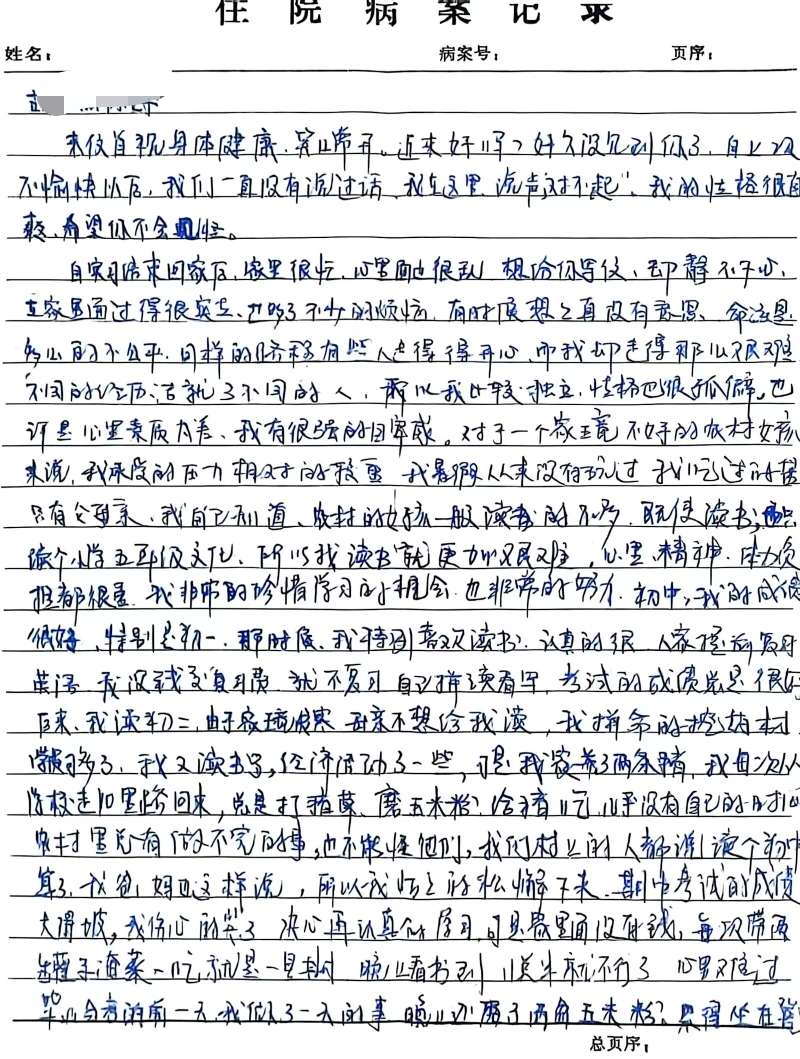 住院病案记录
姓名： 病案号： 页序：
来信自祝身体健康，笑口常开。近来好吗？好久没见到你了，自上次
不愉快以后，我们一直没有说过话，我在这里说声"对不起"，我的性格很直
爽，希望你不会见怪。
自实习结束回家后，家里很忙，心里面也很乱，想给你写信，却静不下心，
在家里面过得很实在，也多了不少的烦恼，有时候想想真没有意思，命运是
多么的不公平，同样的路程有些人走得得开心，而我却走得那么艰难
不同的经历造就了不同的人，所以我比较独立，性格也很孤僻，也
许是心里素质太差，我有很强的自卑感。对于一个家境不好的农村女孩
来说，我承受的压力相对的较重，我暑假从来没有玩过，我
只有父母亲，我自己知道，农村的女孩一般读书的不多，既使读书，也只
读个小学五年级文化，所以我读书就更加艰难，心里、精神、体力负
担都很重，我非常的珍惜学习的机会，也非常的努力，初中，我的成绩
很好，特别是初一，那时候，我特别喜欢读书，认真的很，人家提前复习
英语，我没钱交复习费，就不复习，自己拼读看写，考试的成绩总是很好
后来，我读初二，由于家境贫寒，母亲不想给我读，我拼命的
多了，我又读书了，经济活动了一些，可是我家养了两条猪，我每次从
学校走10里路回来，总是打猪草、磨玉米粉，给猪吃，几乎没有自己的时间
农村里总有做不完的事，也不能怪他们，我们村上的人都说读个初中
算了，我爸、妈也这样说，所以我慢慢的松懈下来，期中考试的成绩
大滑坡，我伤心的哭了，决心再认真的学习，可是家里面没有钱，每次带
海菜一吃就是一星期，晚上看书到 就不行了，心里难过
毕业会考的前一天，我做了一天的事，晚上还磨了两 玉米粉，只得坐在
总页序：